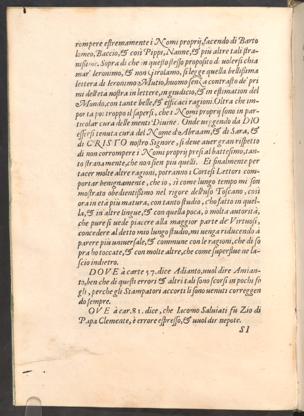 rompere estremamente i Nomi proprij, facendo di Barto
lomeo, Baccio, & così Pippe, Nanne, & più altre tali stra-
nissime. Sopra di che in questo stesso proposito di uolersi chia
mar Ieronimo, & non Girolamo, si legge quella bellissima
lettera di Ieronimo Mutio, huomo senza contrasto de' pri
mi dell'età nostra in lettere, in giudicio, & in estimation del
Mondo, con tante belle, & efficaci ragioni. Oltra che im-
porta pur troppo il sapersi, che i Nomi proprij sono in par-
ticolar cura delle menti Diuine. Onde uegendo da DIO
essersi tenuta cura del Nome d'Abraam, & di Sara, &
di CRISTO nostro Signore, si deue auer gran rispetto
di non corrompere i Nomi proprij presi al battesimo, tan-
to stranamente, che non sien più quelli. Et finalmente per
tacer molte altre ragioni, potranno i Cortesi Lettori com-
portar benignamente, che io, sì come lungo tempo mi son
mostrato obedientissimo nel rigore del uso Toscano, così
ora in età più matura, con tanto studio, che fatto in quel-
la, & in altre lingue, & con quella poca, ò molta autorità,
che pure si uede piacere alla maggior parte de' Virtuosi,
concedere al detto mio lungo studio, mi uenga riducendo à
parere più uniuersale, & commune con le ragioni, che di so
pra ho toccate, & con molte altre, che come superflue ne la-
scio indietro.
DOVE à carte 57. dice Adianto, uuol dire Amian-
to, ben che di questi errori & altri tali sono scorsi in pochi fo
gli, perche gli Stampatori accorti li sono uenuti correggen
do sempre.
OVE à car. 81. dice, che Iacomo Saluiati fu Zio di
Papa Clemente, è errore espresso, & uuol dir nepote.
SI